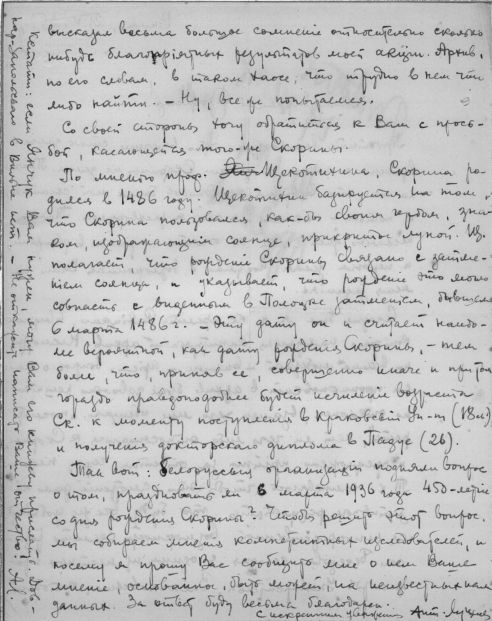 высказал весьма большое сомнение относительно сколько
нибудь благоприятных результатов моей акции. Архив,
по его словам, в таком хаосе, что трудно в нем что
либо найти. – Ну, все же попытаемся.
Со своей стороны хочу обратиться к Вам с прось-
бой, касающейся того-же Скорины.
По мнению проф. Щекотихина, Скорина ро-
дился в 1486 году. Щекотихин базируется на том,
что Скорина пользовался, как-бы своим гербом, зна-
ком, изображающим солнце, прикрытое луной. Щ.
полагает, что рождение Скорины связано с затме-
нием солнца, и указывает, что рождение это могло
совпасть с виденным в Полоцке затмением, бывшем
6 марта 1486 г. – Эту дату он и считает наибо-
лее вероятной, как дату рождения Скорины, – тем
более, что, приняв ее, совершенно иначе и притом
гораздо правдоподобнее будет исчисление возраста
Ск. к моменту поступления в Краковский Ун-т (18 л.)
и получения докторского диплома в Падуе (26).
Так вот: Белорусския организации подняли вопрос
о том, праздновать ли 6 марта 1936 года 450-летие
со дня рождения Скорины? Чтобы решить этот вопрос,
мы собираем мнения компетентных изследователей, и
посему я прошу Вас сообщить мне о нем Ваше
мнение, основанное, быть может, на неизвестных нам
данных. За ответ буду весьма благодарен.
С искренним уважением Ант. Луцкевич
Кстати: если Янчук Вам нужен, могу Вам его книжку прислать. Дов-
нар-Запольского в Вильне нет. – Не откажите написать Ваше отчество! А.Л.